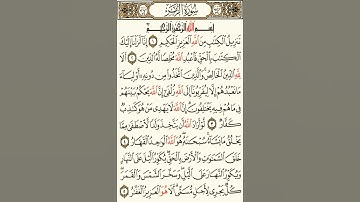 سُورَةُ الزُّمَرِ
بِسْمِ اللَّهِ الرَّحْمَٰنِ الرَّحِيمِ
تَنزِيلُ الْكِتَابِ مِنَ اللَّهِ الْعَزِيزِ الْحَكِيمِ ١ إِنَّا أَنزَلْنَا إِلَيْكَ
الْكِتَابَ بِالْحَقِّ فَاعْبُدِ اللَّهَ مُخْلِصًا لَّهُ الدِّينَ ٢ أَلَا
لِلَّهِ الدِّينُ الْخَالِصُ وَالَّذِينَ اتَّخَذُوا مِن دُونِهِ أَوْلِيَاءَ
مَا نَعْبُدُهُمْ إِلَّا لِيُقَرِّبُونَا إِلَى اللَّهِ زُلْفَىٰ إِنَّ اللَّهَ يَحْكُمُ بَيْنَهُمْ
فِي مَا هُمْ فِيهِ يَخْتَلِفُونَ إِنَّ اللَّهَ لَا يَهْدِي مَنْ هُوَ كَاذِبٌ
كَفَّارٌ ٣ لَّوْ أَرَادَ اللَّهُ أَن يَتَّخِذَ وَلَدًا لَّاصْطَفَىٰ مِمَّا
يَخْلُقُ مَا يَشَاءُ سُبْحَانَهُ هُوَ اللَّهُ الْوَاحِدُ الْقَهَّارُ ٤
خَلَقَ السَّمَاوَاتِ وَالْأَرْضَ بِالْحَقِّ يُكَوِّرُ اللَّيْلَ عَلَى النَّهَارِ
وَيُكَوِّرُ النَّهَارَ عَلَى اللَّيْلِ وَسَخَّرَ الشَّمْسَ وَالْقَمَرَ
كُلٌّ يَجْرِي لِأَجَلٍ مُّسَمًّى أَلَا هُوَ الْعَزِيزُ الْغَفَّارُ ٥